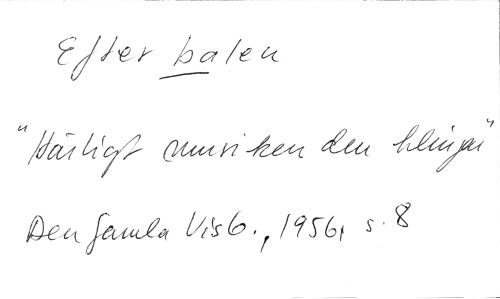 Efter balen
"Härligt musiken den klinger"
Den gamla Visb., 1956, s. 8